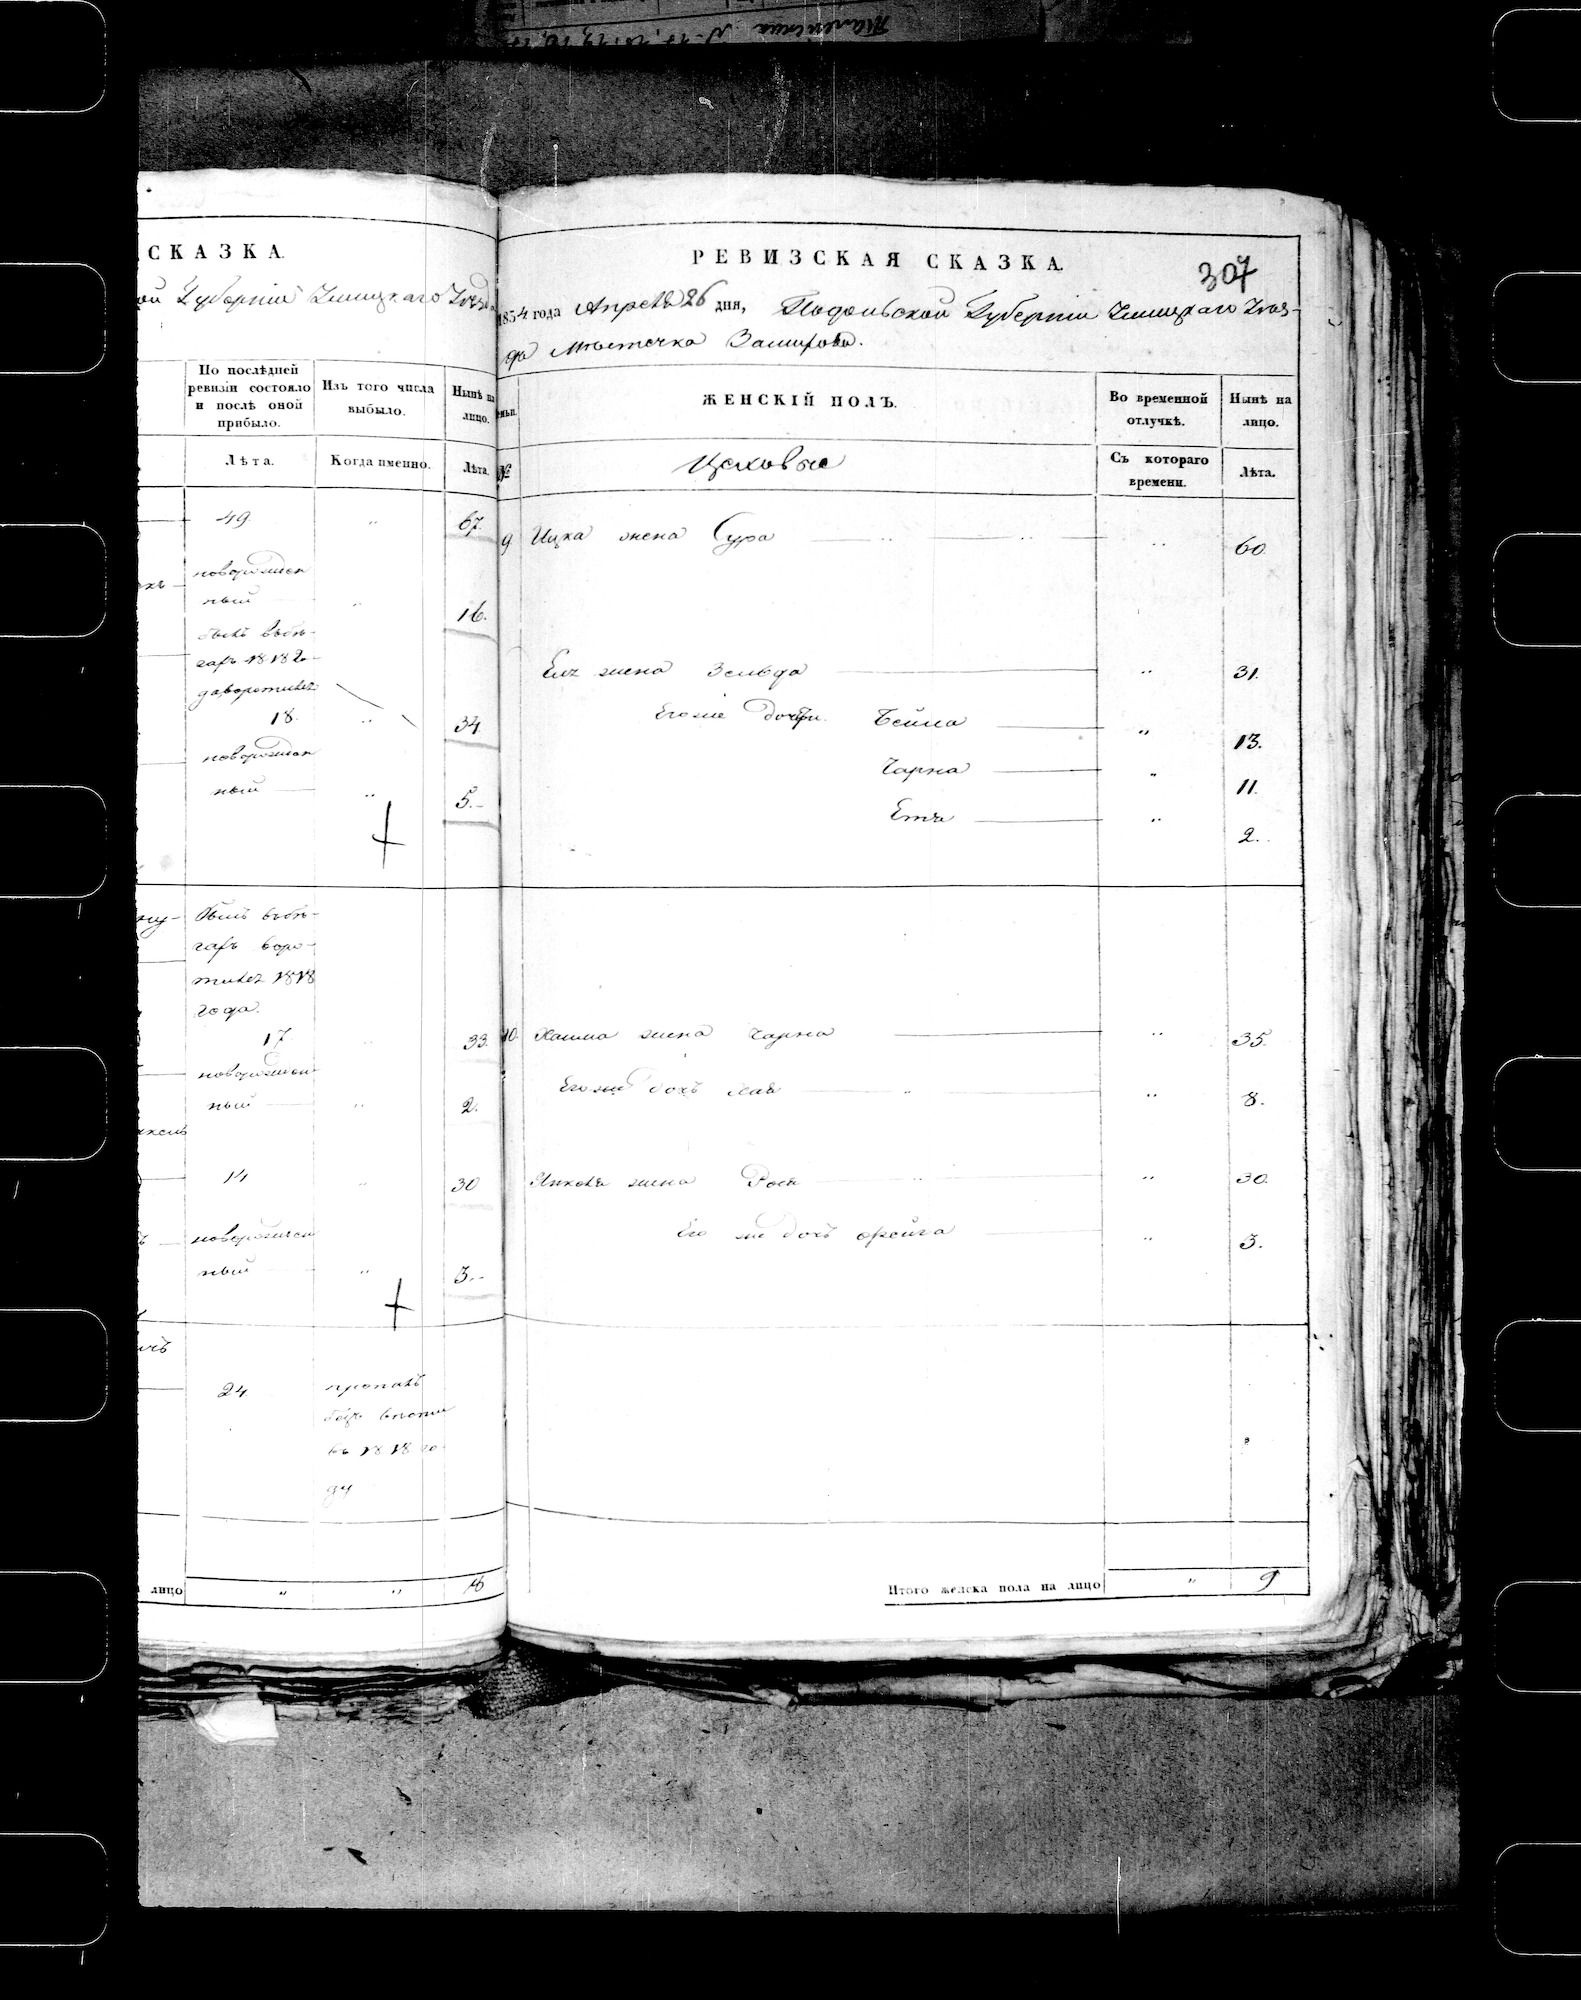 СКАЗКА.
ой Губерніи Уѣзда
По послѣдней ревизіи состояло и послѣ оной прибыло.
Изъ того числа выбыло.
Нынѣ на лицо.
Лѣта.
Когда именно.
Лѣта.
49. " 67.
новорожден
ный " 16.
былъ въбѣ-
гахъ 1818 го-
да воротился
18. " 34
новорожден
ный " 5.
былъ въбѣ-
гахъ воро-
тился 1818
года.
17. " 33.
новорожден
ный " 2.
14 " 30
новорожден
ный " 3.
24 пропалъ
въ 1818 го-
ду
лицо " "
РЕВИЗСКАЯ СКАЗКА.
307
1854 года Апреля 26 дня, Подольской Губерніи Уѣз-
да Мѣстечка
ЖЕНСКІЙ ПОЛЪ.
Во временной отлучкѣ.
Нынѣ на лицо.
№
Цеховые
Съ котораго времени.
Лѣта.
9 Ицка жена Сура " 60
жена Зельда " 31.
Егоже дочери Бейла " 13.
Чарна " 11.
Етя " 2.
10. Хаима жена Чарна " 35.
Егоже дочь Хая " 8.
Янкеля жена Рося " 30.
Его же дочь Фрейга " 3.
Итого женска пола на лицо " 9